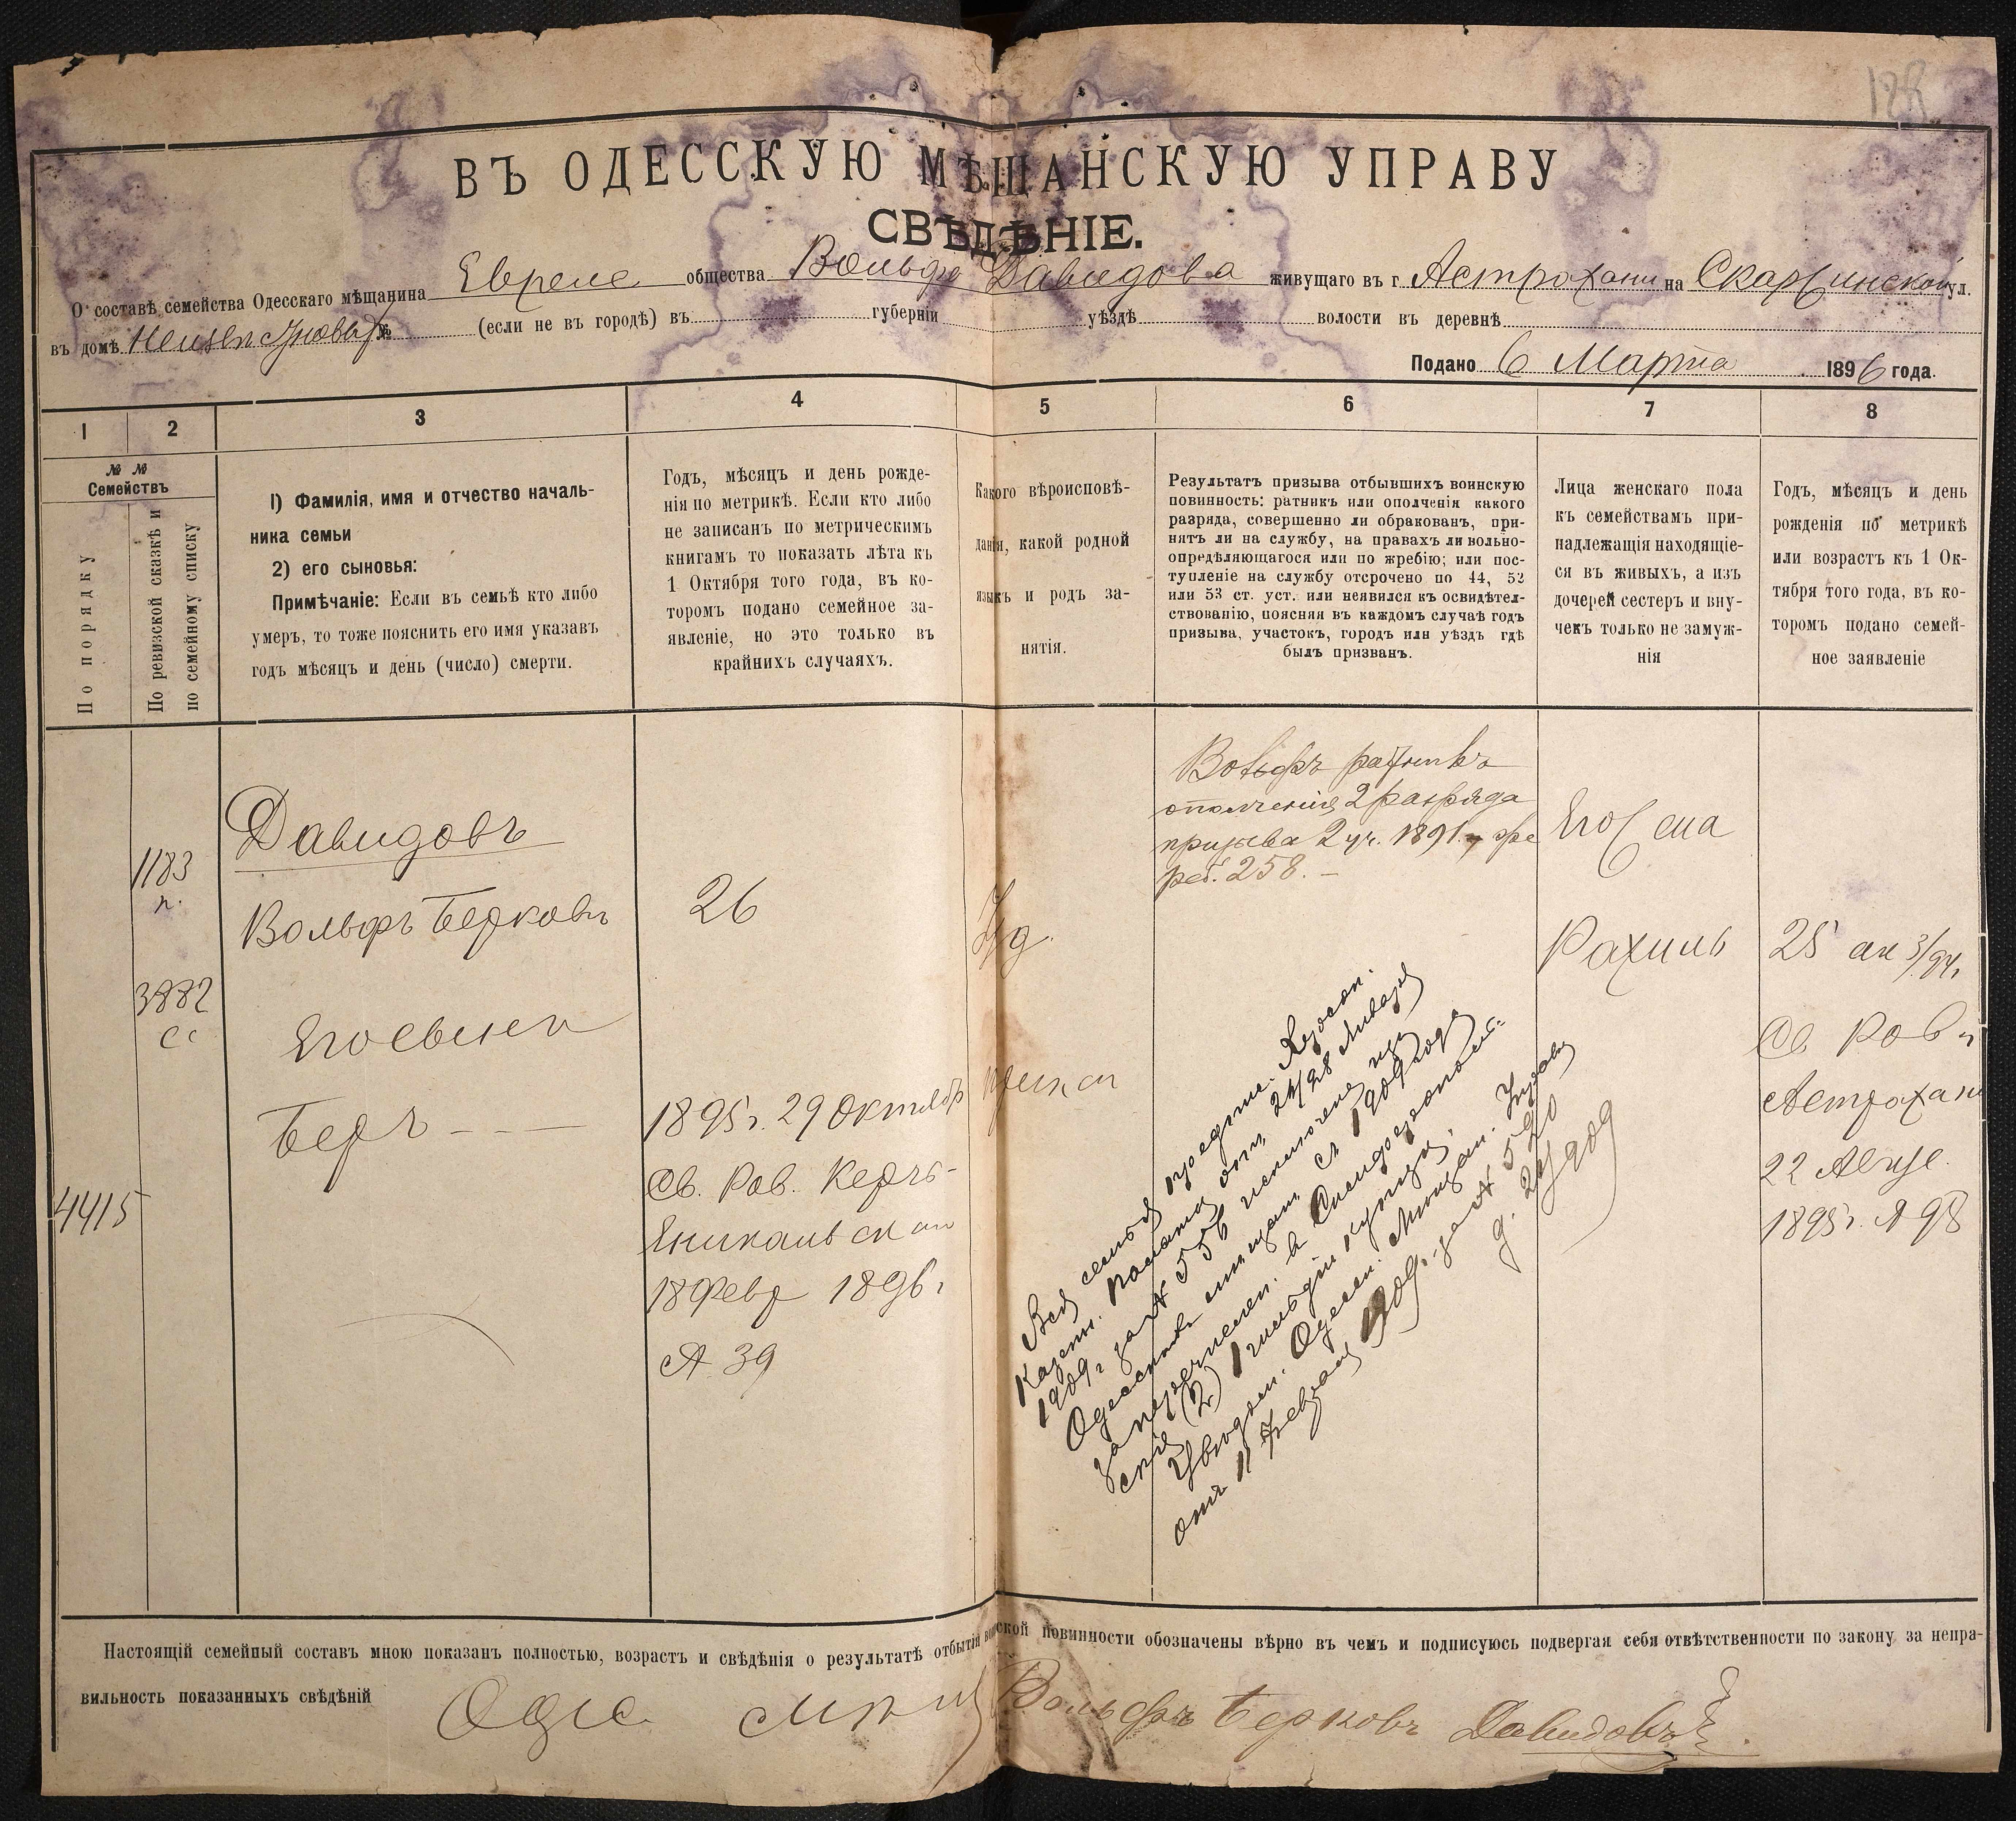 ВЪ ОДЕССКУЮ МѢЩАНСКУЮ УПРАВУ
СВѢДѢНІЕ.
О составѣ семейства Одесскаго мѣщанина Евреи общества Вольфа Давидова живущаго въ г. Астрохани на ул.
въ домѣ № (если не въ городѣ) въ губерніи уѣздѣ волости въ деревнѣ
Подано 6 Марта 1896 года.
1 2 3 4 5 6 7 8
№ № Семействъ
По порядку
По ревизской сказкѣ и по семейному списку
1) Фамилія, имя и отчество началь-
ника семьи
2) его сыновья:
Примѣчаніе: Если въ семьѣ кто либо
умеръ, то тоже пояснить его имя указавъ
годъ мѣсяцъ и день (число) смерти.
Годъ, мѣсяцъ и день рожде-
нія по метрикѣ. Если кто либо
не записанъ по метрическимъ
книгамъ то показать лѣта къ
1 Октября того года, въ ко-
торомъ подано семейное за-
явленіе, но это только въ
крайнихъ случаяхъ.
Какого вѣроисповѣ-
данія, какой родной
языкъ и родъ за-
нятія.
Результатъ призыва отбывшихъ воинскую
повинность: ратникъ или ополченія какого
разряда, совершенно ли обракованъ, при-
нятъ ли на службу, на правахъ ли вольно-
опредѣляющагося или по жребію; или пос-
тупленіе на службу отсрочено по 44, 52
или 53 ст. уст. или неявился къ освидѣтел-
ствованію, поясняя въ каждомъ случаѣ годъ
призыва, участокъ, городъ или уѣздъ гдѣ
былъ призванъ.
Лица женскаго пола
къ семействамъ при-
надлежащія находящіе-
ся въ живыхъ, а изъ
дочерей сестеръ и вну-
чекъ только не замуж-
нія
Годъ, мѣсяцъ и день
рожденія по метрикѣ
или возрастъ къ 1 Ок-
тября того года, въ ко-
торомъ подано семей-
ное заявленіе
1183
п.
3882
сс
4415
Давидовъ
Вольфъ Берковъ
Его сынъ
Беръ
26
1895 г. 29 Октября
Св. Рав. Керчь-
Еникальск
18 Февр 1896 г
№ 39
Іуд.
Вольфъ ратникъ
ополченія 2 разряда
призыва 2 уч. 1891 г.
258.
Вся семья предпис. Херсон.
Казен. Палаты отъ 24/28 Января
1909 г за № 556 исключена изъ
Одесскихъ мѣщанъ съ 1909 года
за перечислен. въ Симферополь-
скіе (2) 1 гильдіи купцы.
Увѣдомл. Одесск. Мѣщан. Управы
отъ 11 Февраля 1909 г. за № 520
д. 24/909
Его жена
Рахиль
25
Св. Рав
Астрохани
22
1895 г. № 98
Настоящій семейный составъ мною показанъ полностью, возрастъ и свѣдѣнія о результатѣ отбытія воинской повинности обозначены вѣрно въ чемъ и подписуюсь подвергая себя отвѣтственности по закону за непра-
вильность показанныхъ свѣдѣній
Вольфъ Берковъ Давидовъ